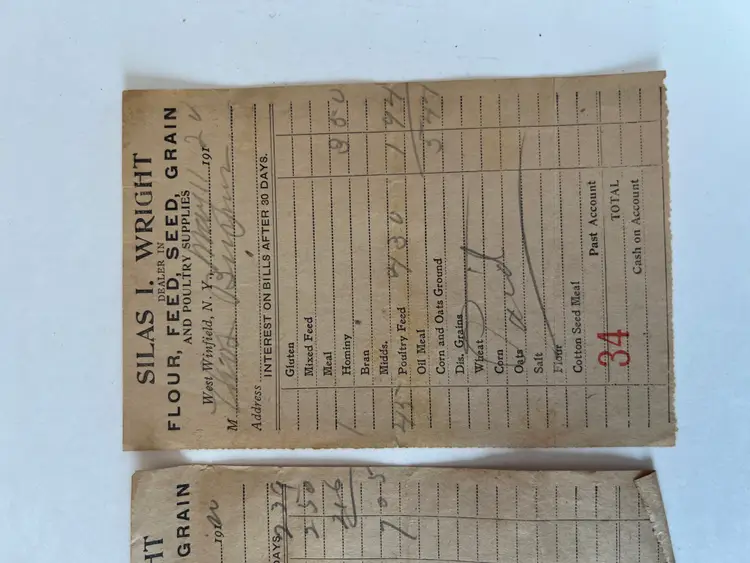 SILAS I. WRIGHT
DEALER IN
FLOUR, FEED, SEED, GRAIN
AND POULTRY SUPPLIES
West Winfield, N. Y. 191
M.
Address
INTEREST ON BILLS AFTER 30 DAYS.
Gluten
Mixed Feed
Meal
1 Hominy
Bran
Midds.
45 Poultry Feed 430 1 94
Oil Meal
Corn and Oats Ground
Dis. Grains
Wheat
Corn Paid
Oats
Salt
Flour
Cotton Seed Meal
Past Account
34 TOTAL
Cash on Account
HT
GRAIN
191
DAYS. 2 39
2 50
2 16
7 05